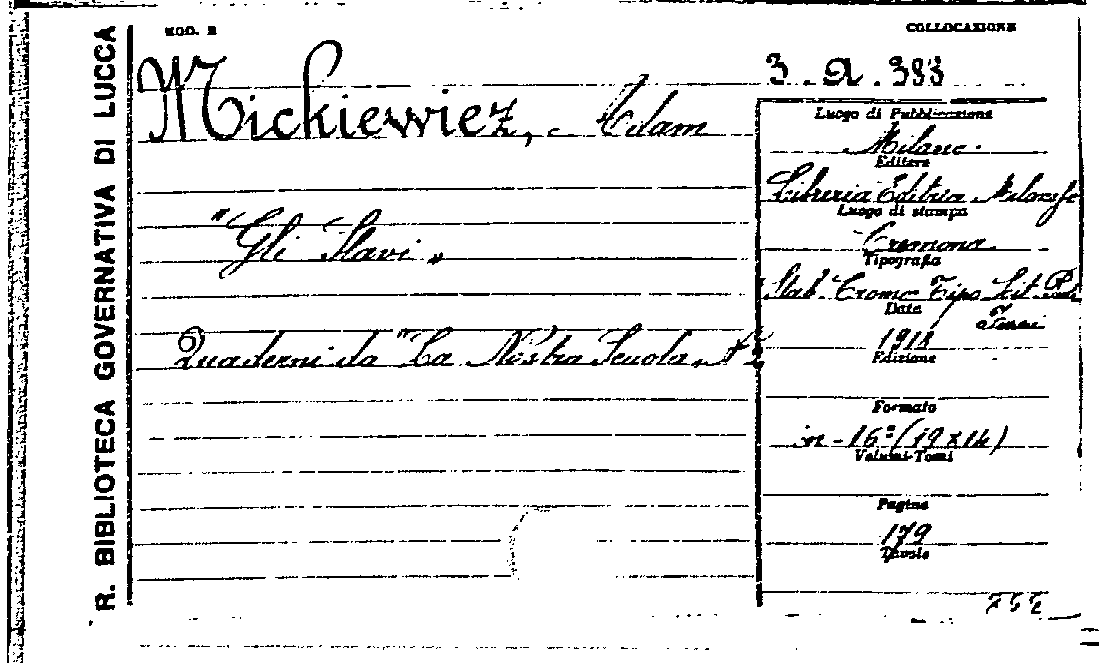 R. BIBLIOTECA GOVERNATIVA DI LUCCA
MOD. B
COLLOCAZIONE
3. A. 383
Mickiewiez, Adam
"Gli Slavi"
Quaderni da "La Nostra Scuola"
Luogo di Pubblicazione
Milano.
Editore
Libreria Editrice Milanese
Luogo di stampa
Cremona.
Tipografia
Stab. Cromo Tipo Lit.
Data
1918
Edizione
Formato
in-16° (19x14)
Volumi-Tomi
Pagine
179
Tavole